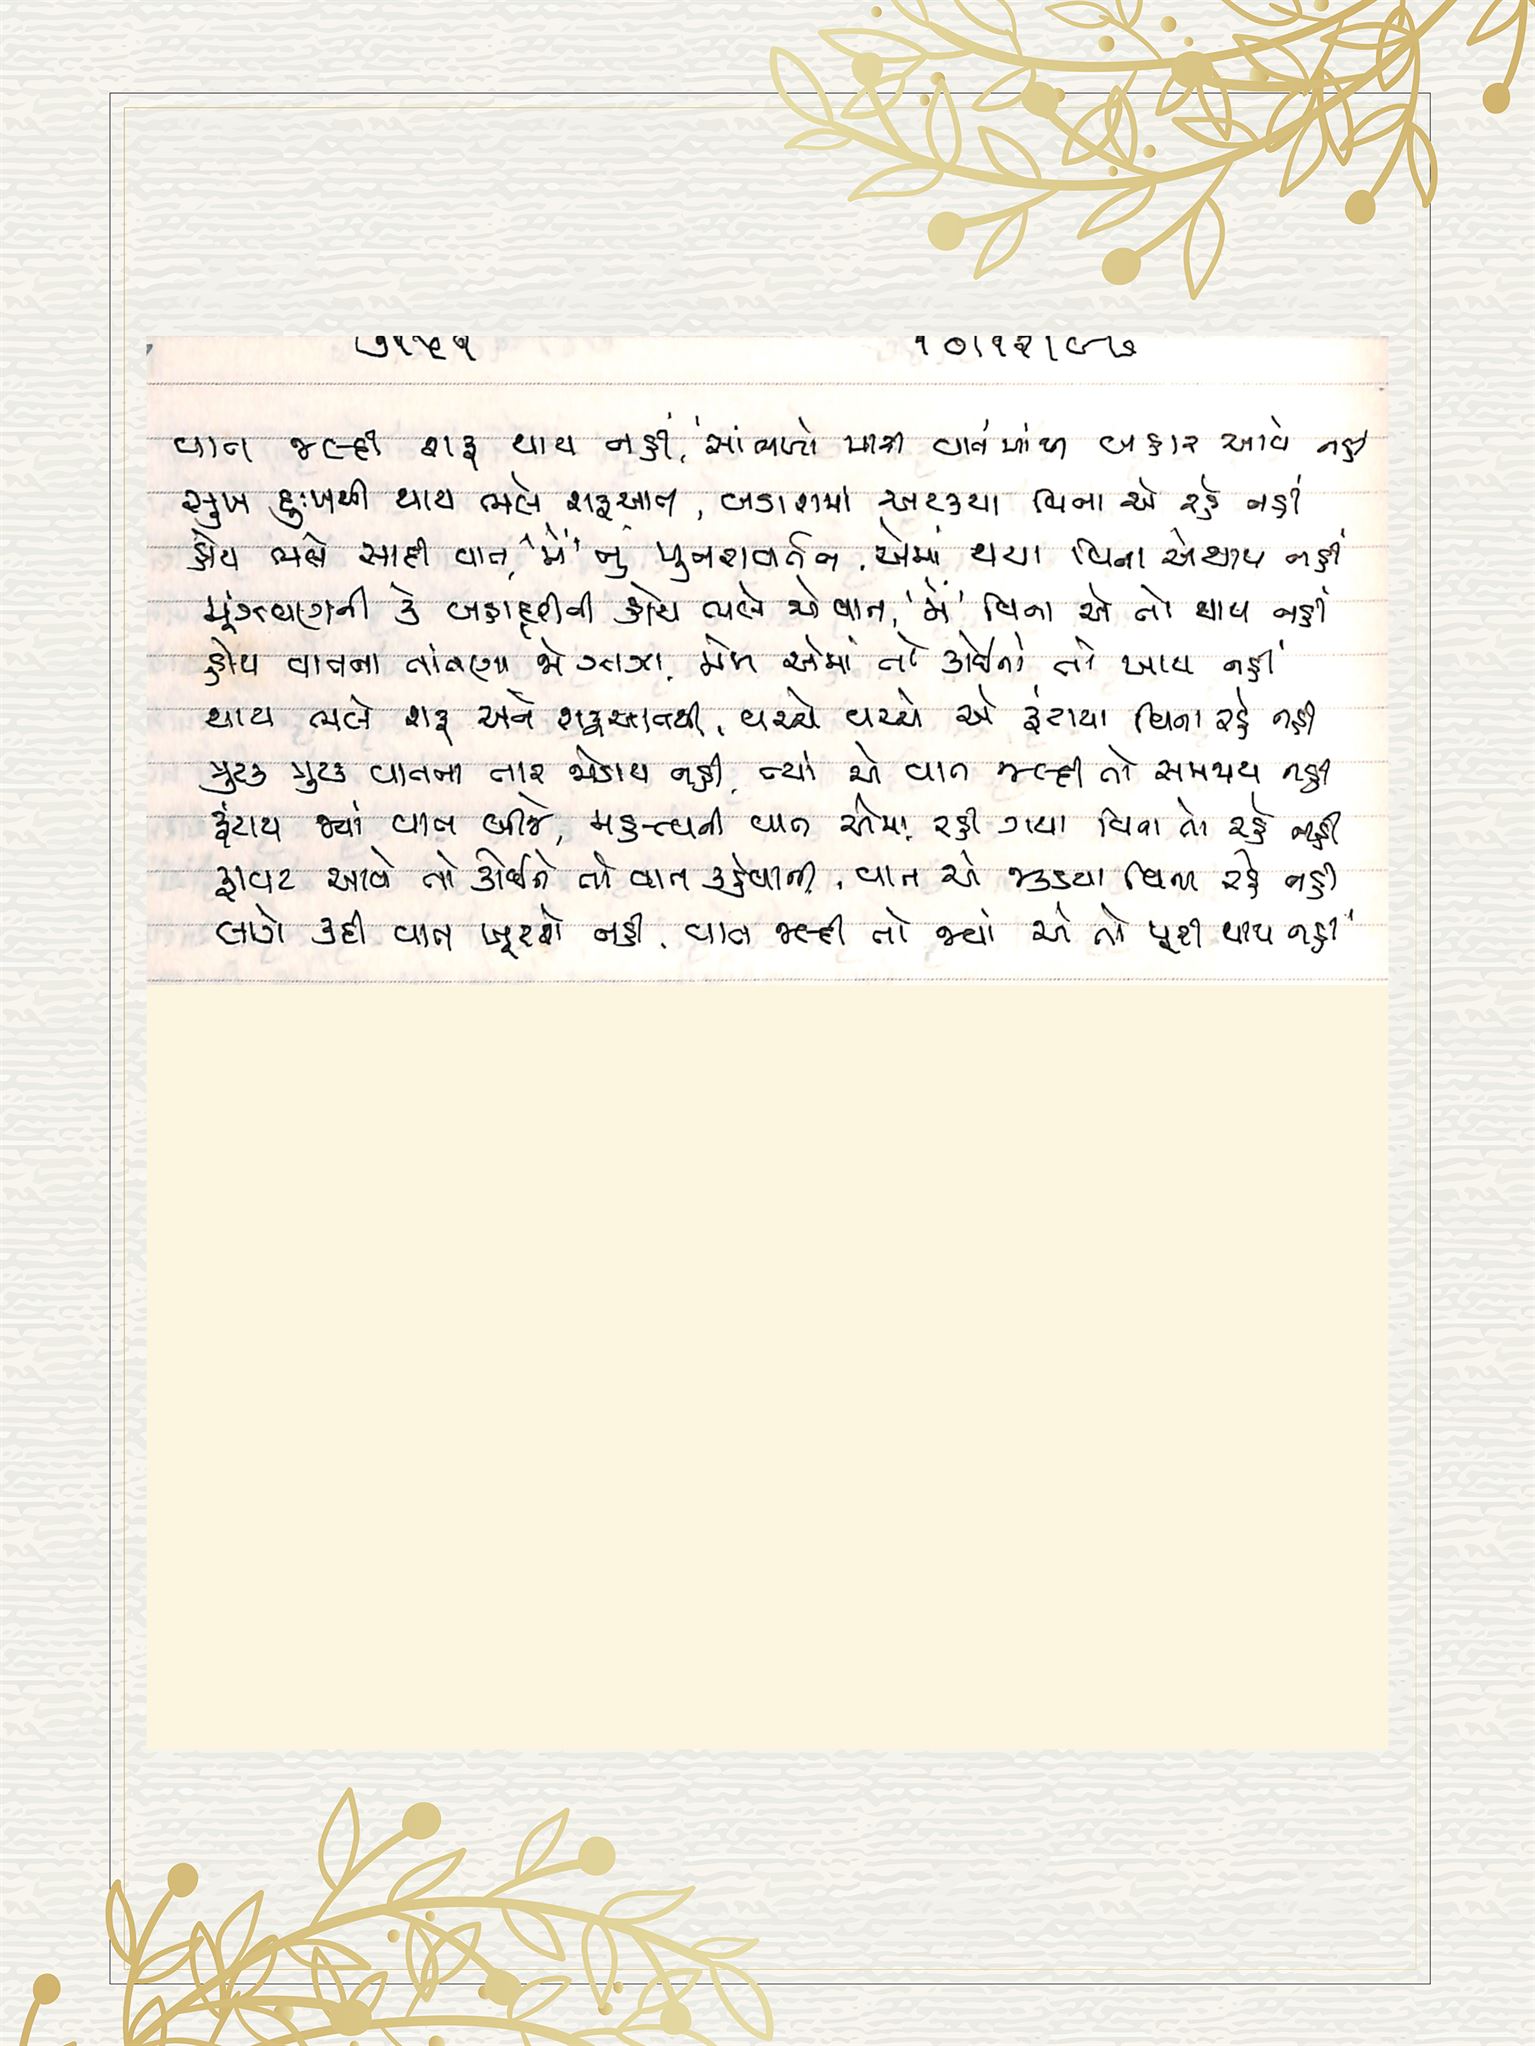 ૭૧૫૧ ૧૦/૧૨/૯૭
વાત જલ્દી શરૂ થાય નહીં, સાંભળો મારી વાતમાં બહાર આવે નહીં
સુખ દુઃખથી થાય ભલે શરૂઆત, બડાશમાં અટક્યા વિના એ રહે નહીં
હોય ભલે સાદી વાત, 'મેં' નું પુનરાવર્તન, એમાં થયા વિના એ થાય નહીં
મૂંઝવણની કે બહાદૂરીની હોય ભલે એ વાત, 'મેં' વિના એ તો થાય નહીં
હોય વાતના તાંતણા જો, મેળ એમાં તો કોઈનો તો ખાય નહીં
થાય ભલે શરૂ અને શરૂઆતથી, વચ્ચે વચ્ચે એ ફંટાયા વિના રહે નહીં
ત્રુટક ત્રુટક વાતના તાર જોડાય નહીં, ત્યાં એ વાત જલ્દી તો સમજાય નહીં
ફંટાય જ્યાં વાત બીજે, મહત્ત્વની વાત એમાં રહી ગયા વિના તો રહે નહીં
ફાવટ આવે તો કોઈને તો વાત કહેવાની, વાત એ જકડયા વિના રહે નહીં
લાગે કદી વાત ખૂટશે નહીં, વાત જલ્દી તો જ્યાં એ તો પૂરી થાય નહીં